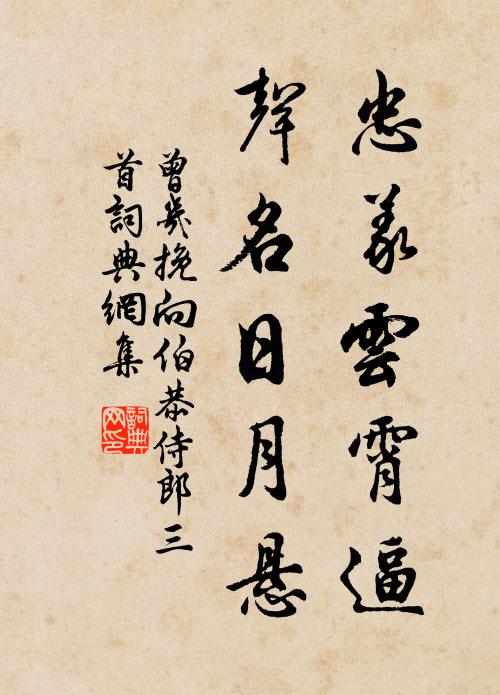 忠義雲霄逼
聲名日月悬
曾幾挽向伯恭侍郎三
首詞典網集
詞典網印